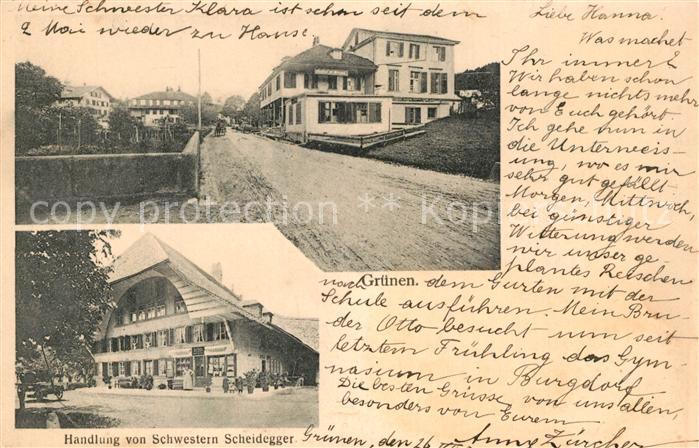 Meine Schwester Klara ist schon seit dem
2 Mai wieder zu Hause
Liebe Hanna.
Was machet
Ihr immer?
Wir haben schon
lange nichts mehr
von Euch gehört.
Ich gehe nun in
die Unterweis-
ung, wo es mir
sehr gut gefällt.
Morgen, Mittwoch,
bei günstiger
Witterung werden
wir unser ge-
plantes Reischen
nach dem Gurten mit der
Schule ausführen. Mein Bru-
der Otto besucht nun seit
letztem Frühling das Gym-
nasium in Burgdorf
Die besten Grüsse von uns allen,
besonders von Eurem
Anny Zürcher
Grünen, den 26.
Grünen.
Handlung von Schwestern Scheidegger
copyright protection
copyright protection